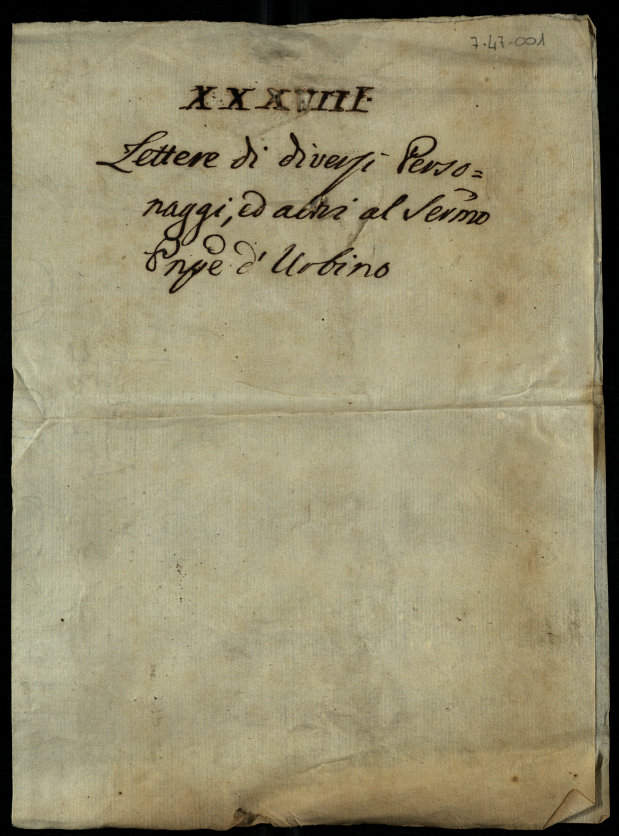 7-47-001
XXXVIII.
Lettere di diversi Perso=
naggi, ed altri al Sermo
Pnpe d'Urbino